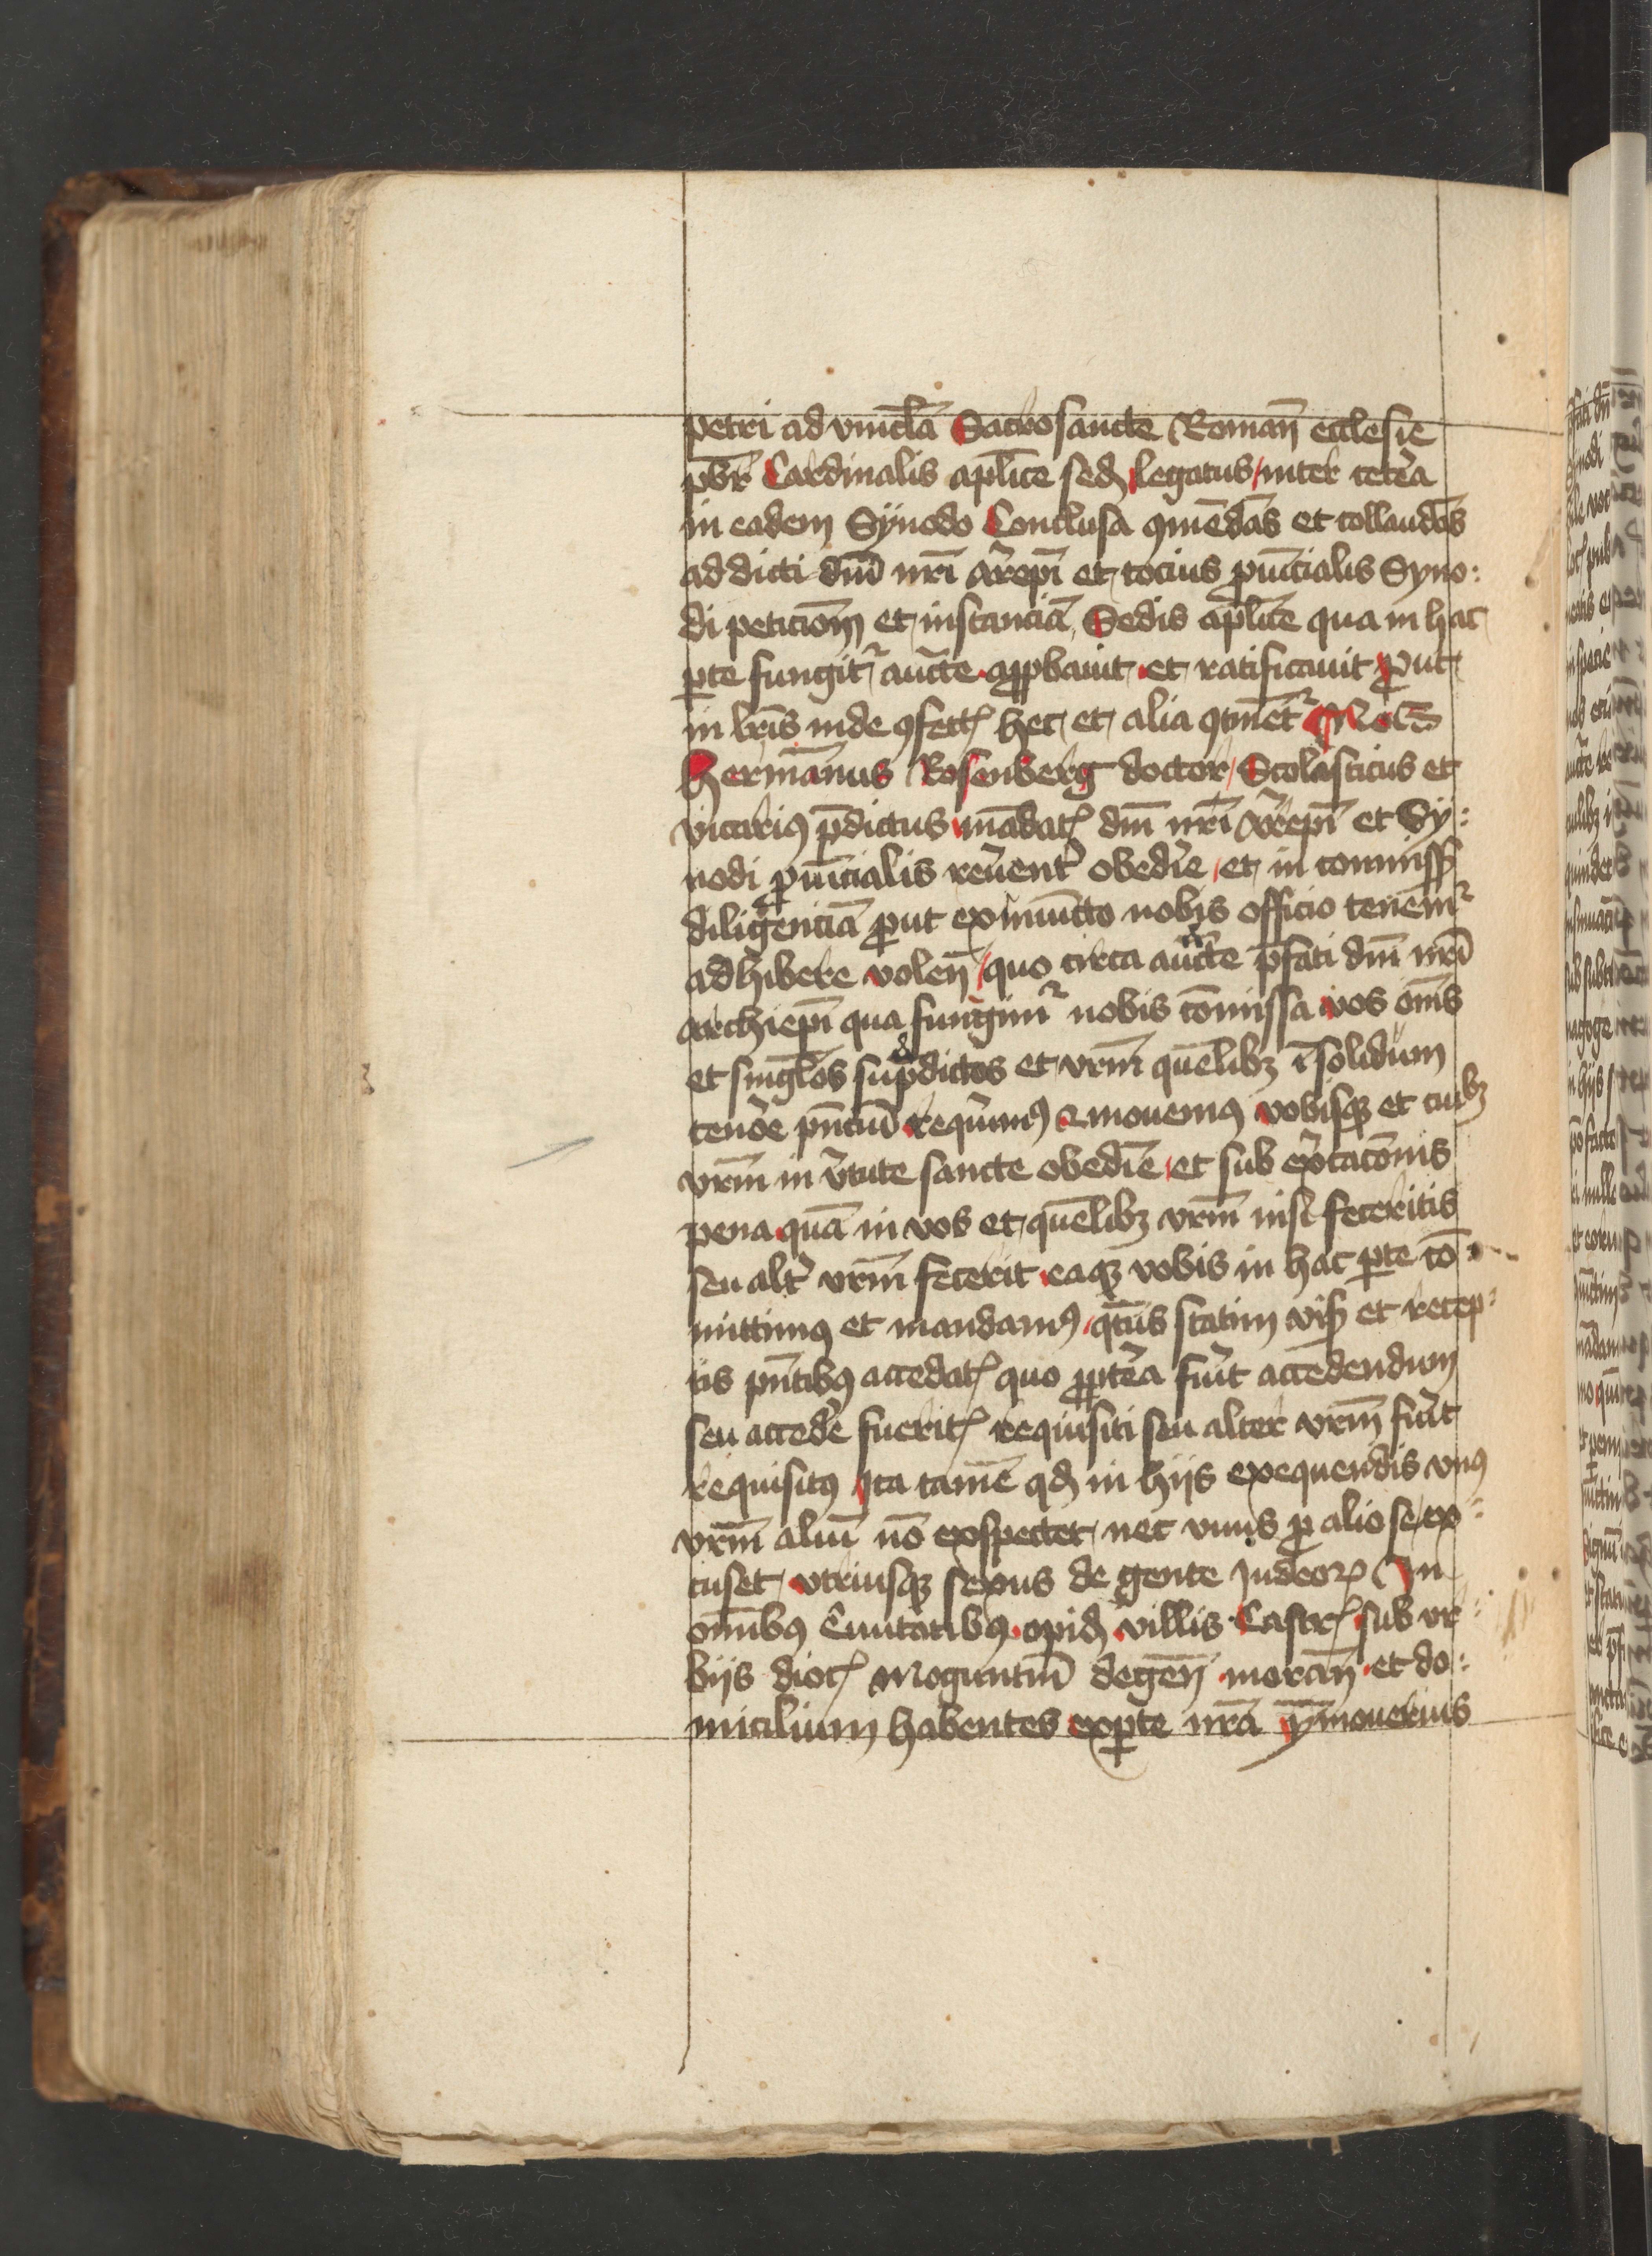 petri ad vincl̄a Sacrosancte Roman̄ ecclesie
pbr̄ Cardinalis apl̄ice sed̨ legatus / inter cetẽa
in eadem Sÿnodo Conclusa ꝯmēdās et collaudās
ad dicti dnī nrī arẽpī et tocius ꝓuīcialis Syno:
di peticiōm et instanciā Sedis apl̄ice qua in hac
ꝑte fungitᷣ auctẽ aꝓpbauit et ratificauit ꝓut
in lrīs inde ꝯfectꝭ hec et alia ꝯtinētᷣ Nos
hermannus Rosenberg doctor / Scolasticus et
vicariꝰ p̄dictus mādatꝭ dnī nrī arẽpī et Sy:
nodi ꝓuīcialis reuẽentᷣ obedĩe et in commiss̨
diligenciā ꝓut ex iniuncto nobis officio tenemᷣ
adhibere volen̄ / quo circa auctẽ p̄fati dnī nrī
archiepī qua fungimᷣ nobis cōmissa vos om̄s
et singl̄os sup̄dictos et vrm̄ quēlibꝫ ī solidum
tenõe pn̄ciū requĩimꝰ & monemꝰ vobisqꝫ et cuilbꝫ
vrm̄ in v̄tute sancte obediē et sub ex̄cacōnis
pena quā in vos et quēlibꝫ vrm̄ nisi feceritis
seu altᷣ vrm̄ fecerit eaqꝫ vobis in hac ꝑte cō
mittimꝰ et mandamꝰ / qt̄us statim vis̨ et recep:
tis pn̄tibꝰ accedatꝭ quo ꝓptẽa fuĩt accedendum
seu accedẽ fueritꝭ requisiti seu alter vrm̄ fuĩt
requisitꝰ Ita tamē qd̨ in hijs exequendis vnꝰ
vrm̄ aliū nō exspectet nec vnus ꝓ alio se ex:
cuset vtriusqꝫ sexus de gente Judeoꝝ In
omībꝰ Ciuitatibꝰ opid̨ villis Castrꝭ sub vr
bijs diocꝭ Moguntin̄ degen̄ moran̄ et do:
micilium habentes ex ꝑte nrā ꝓmoueritis